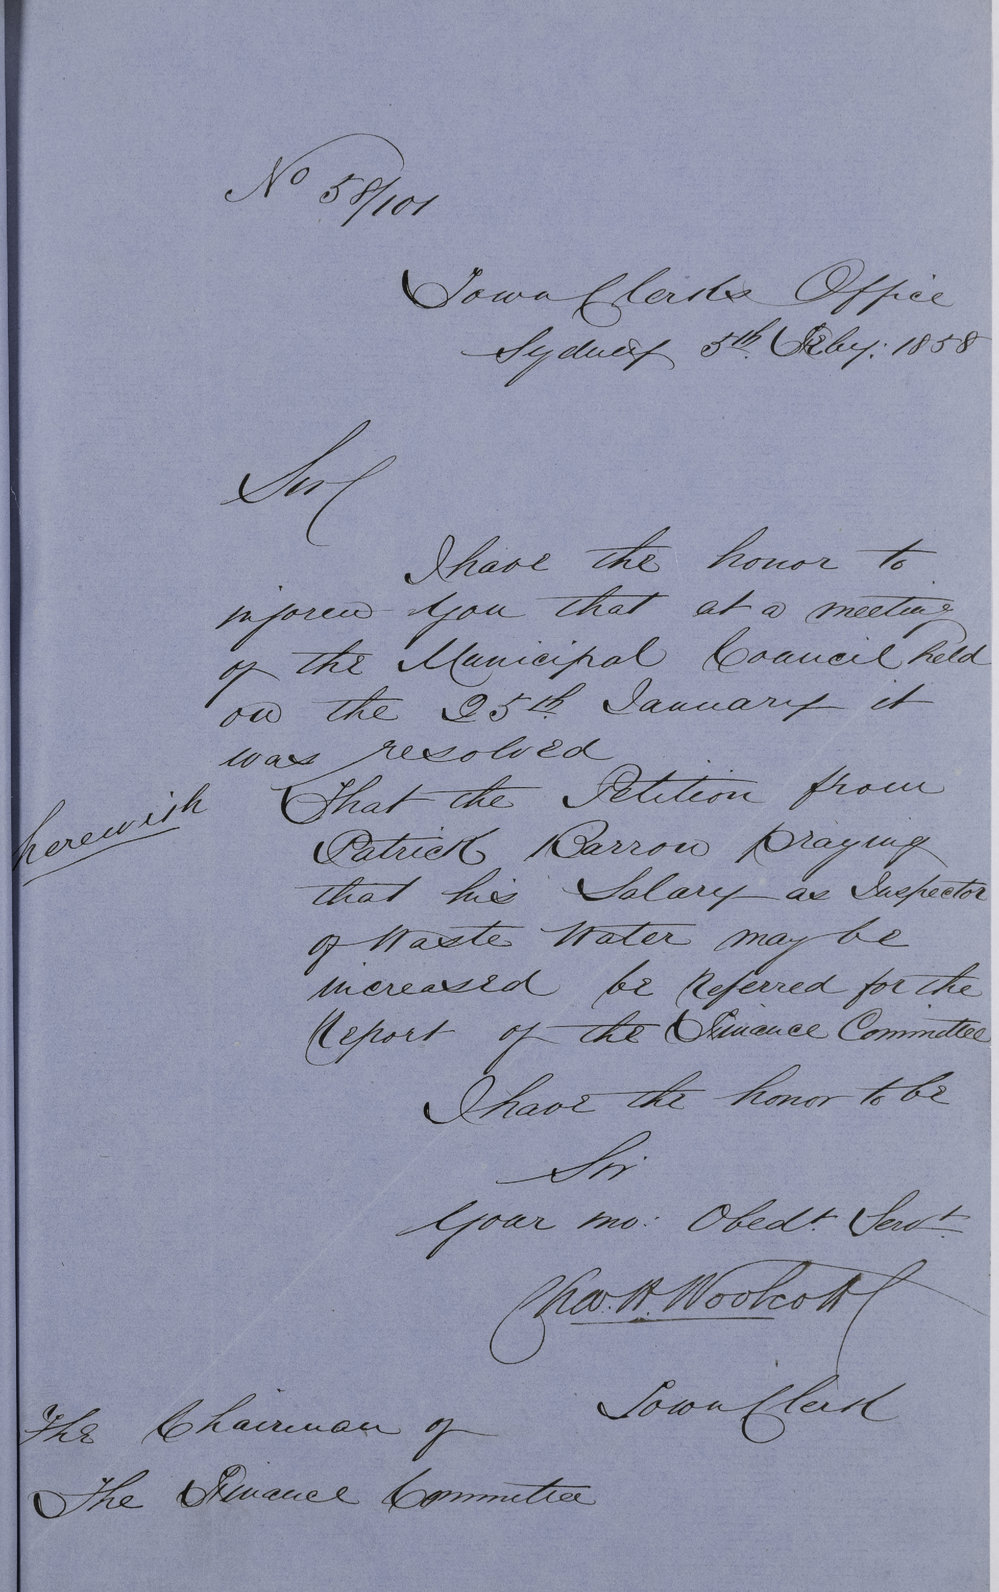 No 58/101
Town Clerks Office
Sydney 5th. Feby: 1858
Sir
I have the honor to
inform You that at a meeting
of the Municipal Council held
on the 25th. January it
was resolved
herewith
That the Petition from
Patrick Barron praying
that his Salary as Inspector
of Waste Water may be
increased be Referred for the
Report of the Finance Committee
I have the honor to be
Sir
Your mo: Obedt. Servt.
Chas. H. Woolcott
Town Clerk
The Chairman of
The Finance Committee